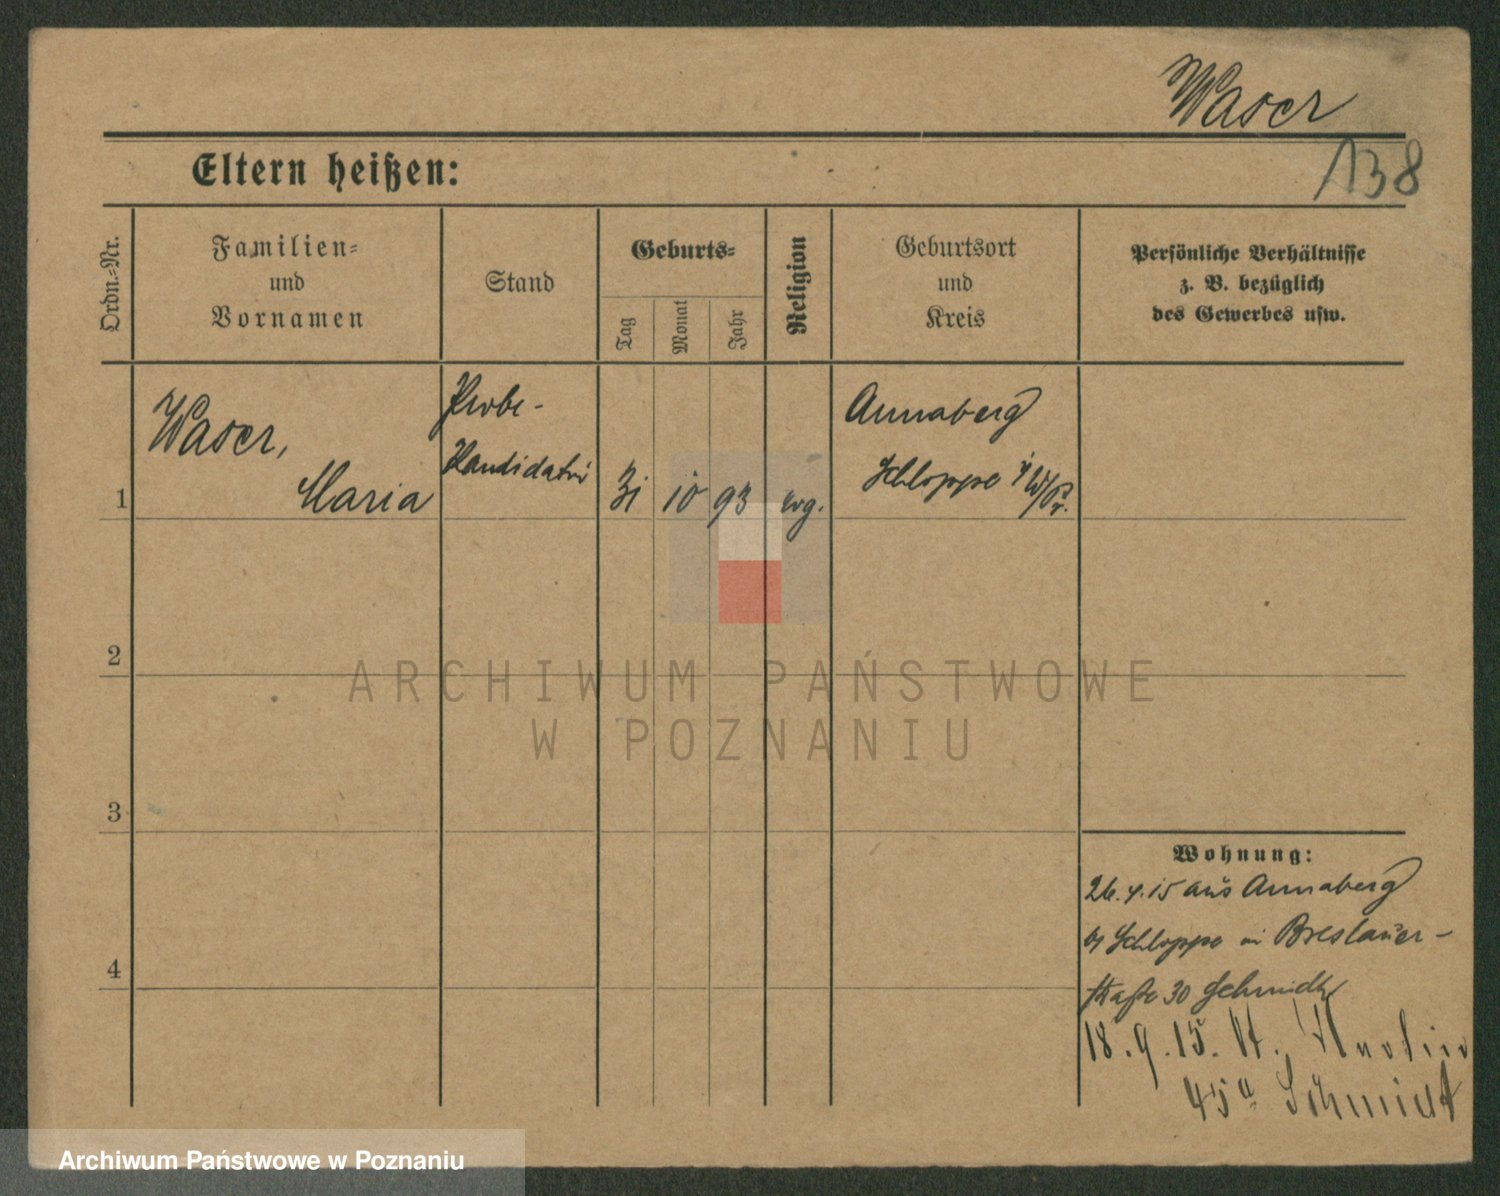 Waser
138
Eltern heißen:
Ordn.-Nr.
Familien-
und
Vornamen
Stand
Geburts-
Tag
Monat
Jahr
Religion
Geburtsort
und
Kreis
Persönliche Verhältnisse
z. B. bezüglich
des Gewerbes usw.
1
Waser,
Maria
Probe-
Kandidatin
31
10
93
evg.
Annaberg
Schloppe i/W/Pr.
2
3
4
Wohnung:
26.4.15 aus Annaberg
b/ Schloppe in Breslauer-
straße 30 Schmidt
18.9.15. St. Martin
45a Schmidt
ARCHIWUM PAŃSTWOWE
W POZNANIU
Archiwum Państwowe w Poznaniu